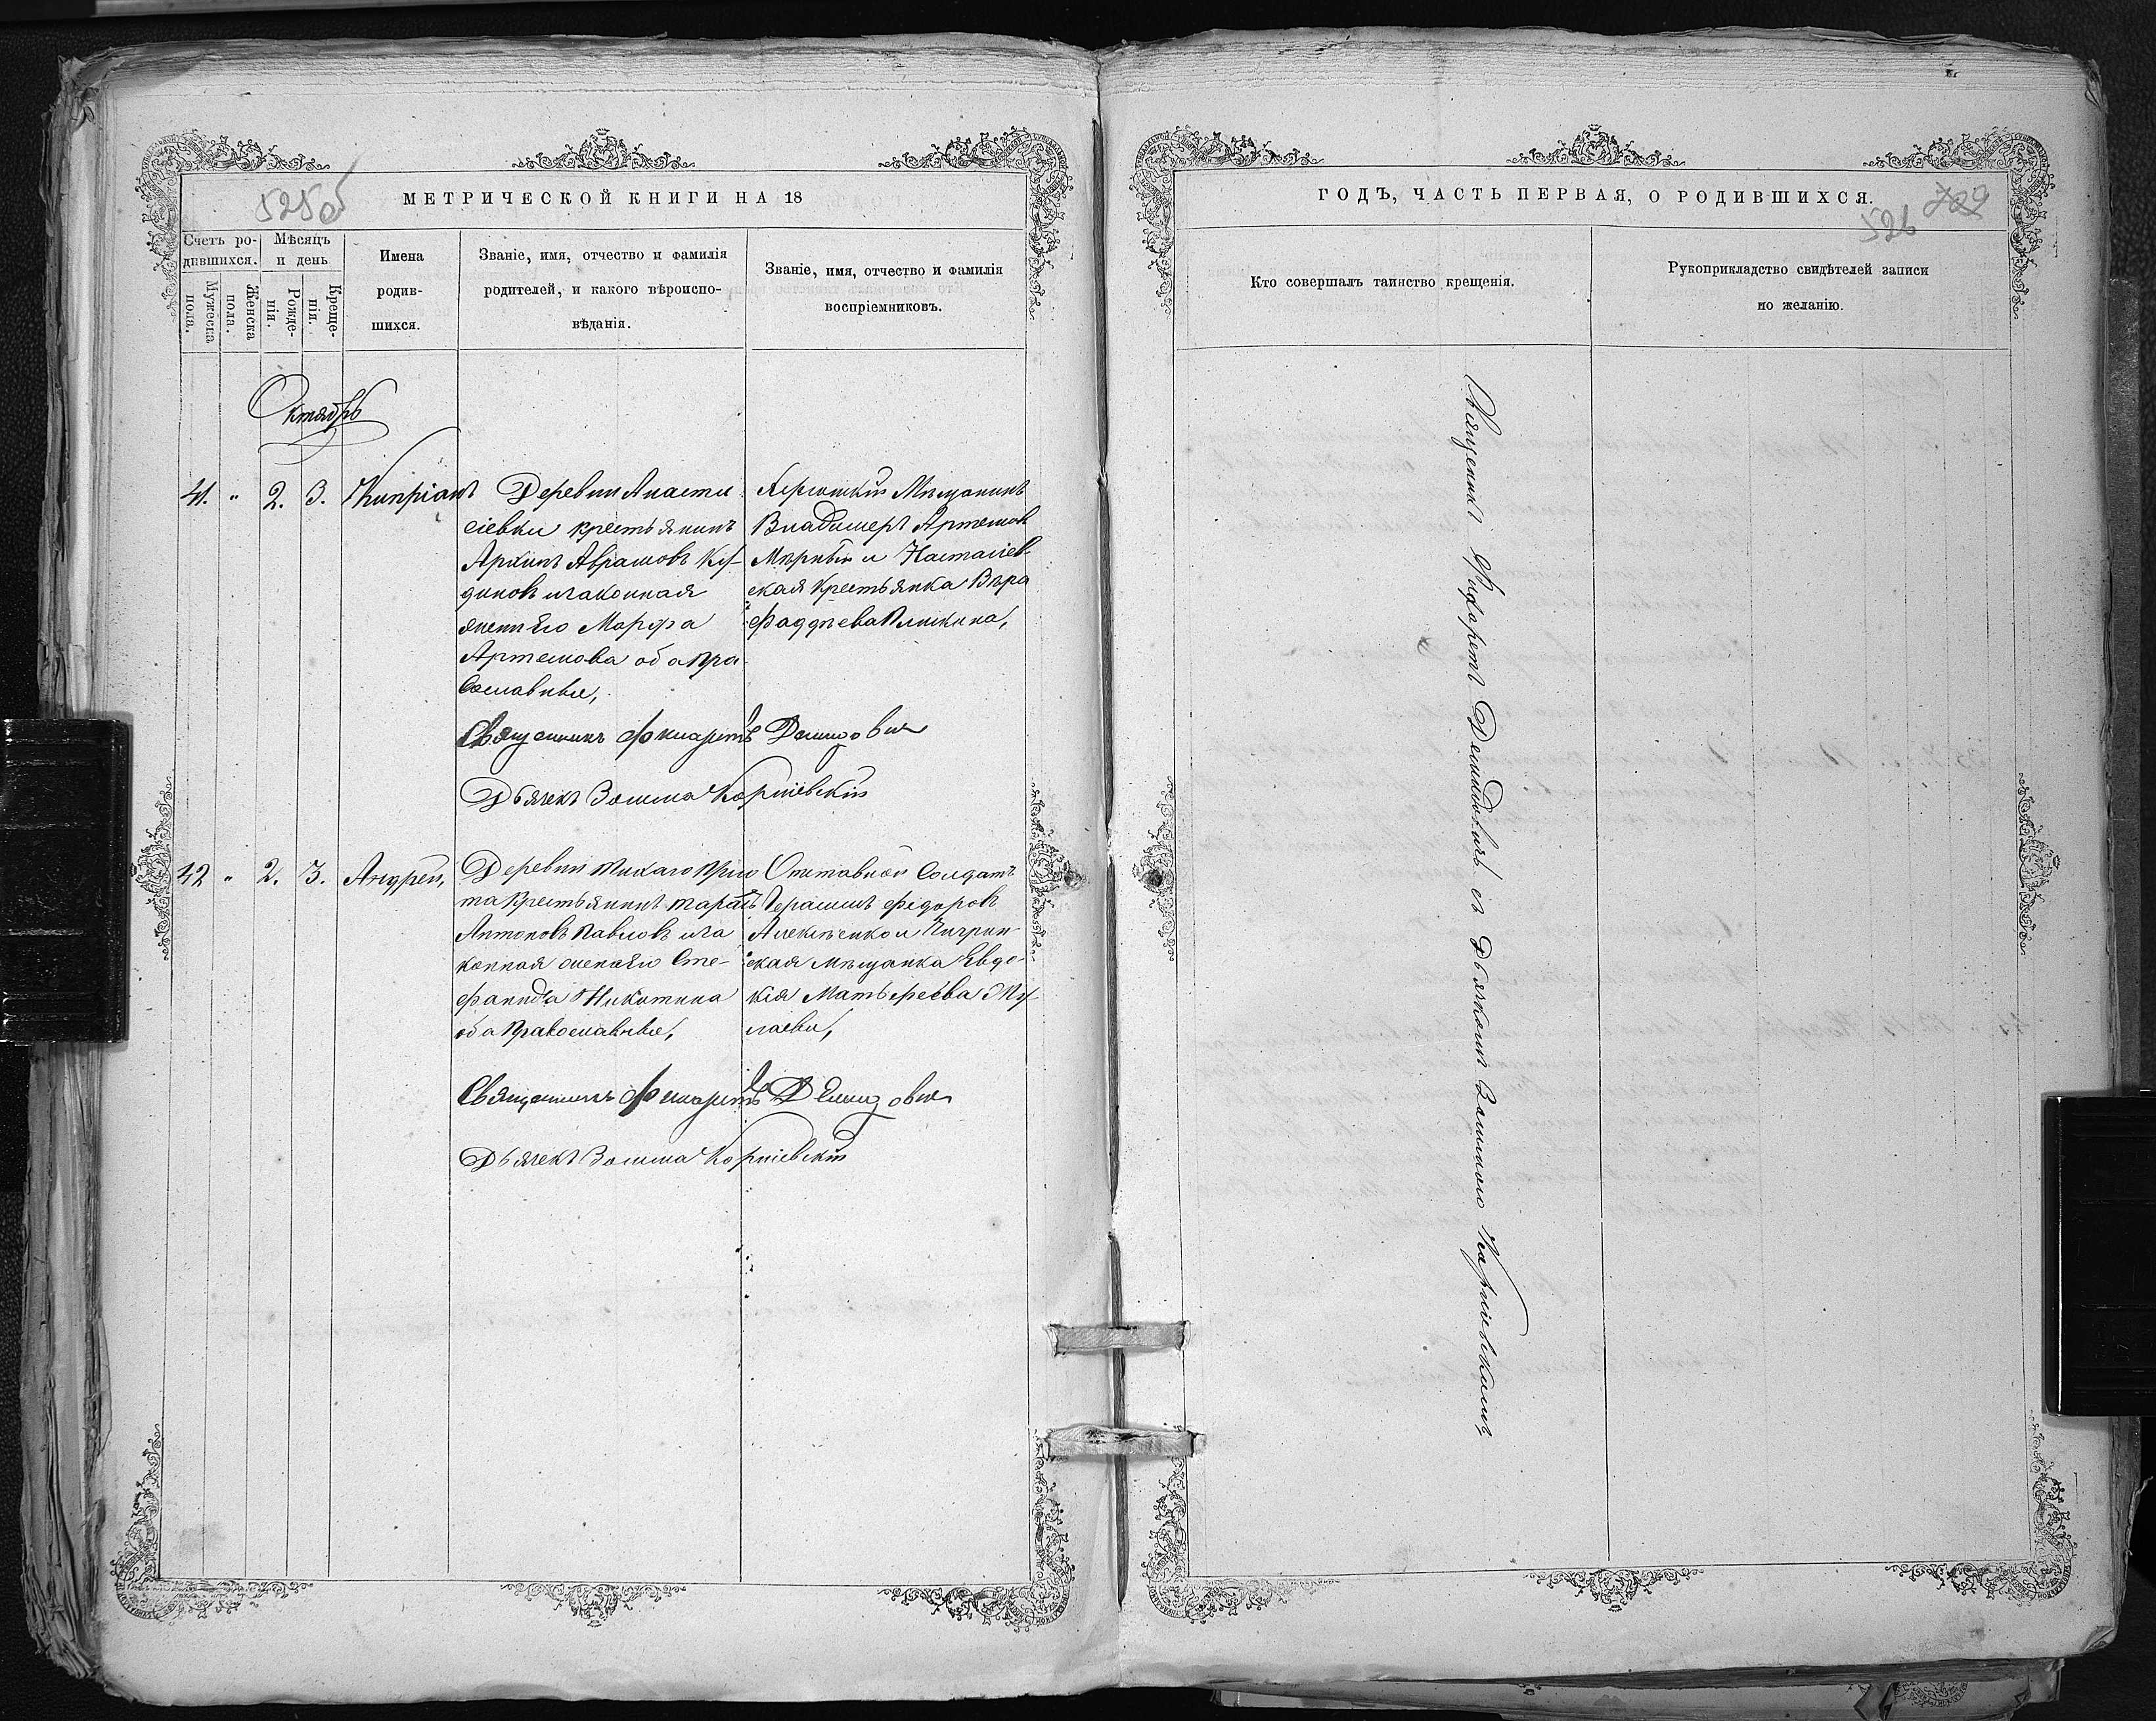 525 об
МЕТРИЧЕСКОЙ КНИГИ НА 18
Счетъ ро-
дившихся.
Мѣсяцъ
и день
Мужеска
пола.
Женска
пола.
Рожде-
нія.
Креще-
нія.
Имена
родив-
шихся.
Званіе, имя, отчество и фамилія
родителей, и какого вѣроиспо-
вѣданія.
Званіе, имя, отчество и фамилія
воспріемниковъ.
Октябрь
41. " 2. 3. Кипріанъ
Деревни Анаста
сіевки крестьянинъ
Архипъ Аврамовъ
и законная
жена его Марфа
Артемова оба пра
вославные,
Херсонскій Мѣщанинъ
Владимеръ Артемов
Мѣрный и Настасіев-
ская крестьянка Вѣра
Фаддѣева
Священникъ Филаретъ Демидович
Дьячекъ Зосима Корніевскій
42 " 2. 3. Андрей,
Деревни
та Крестьянинъ Тарасъ
Антоновъ Павловъ и за
конная жена его Сте-
фанида Никитина
оба православные,
Отставной Солдатъ
Герасимъ Федоровъ
Алексѣенко и
ская Мѣщанка Евдо
кія Матвѣева
лаева,
Священникъ Филаретъ Демидович
Дьячекъ Зосима Корніевскій
ГОДЪ, ЧАСТЬ ПЕРВАЯ, О РОДИВШИХСЯ.
709
526
Кто совершалъ таинство крещенія.
Рукоприкладство свидѣтелей записи
по желанію.
Священникъ Филаретъ Демидовичъ съ Дьячкомъ Зосимою Корніевскимъ